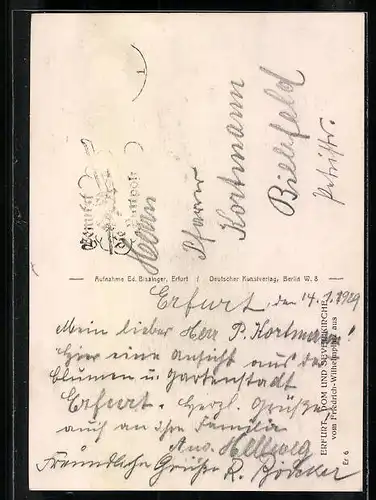 Herrn
Pfarrer
Kortmann
Bielefeld
Petristr.
Benutzt
die
Aufnahme Ed. Bissinger, Erfurt / Deutscher Kunstverlag, Berlin W. 8
ERFURT, DOM UND SEVERIKIRCHE
vom Friedrich-Wilhelmplatz aus
Er 6
Erfurt, den 14.1.1929
Mein lieber Herr P. Kortmann!
Hier eine Ansicht aus der
Blumen u. Gartenstadt
Erfurt. Herzl. Grüße
auch an Ihre Familie
Aug. Hellweg
Freundliche Grüße R.